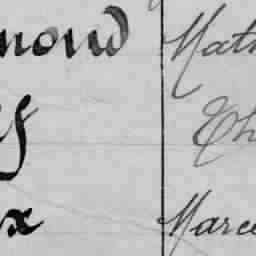 mond Math
y Th
x Marce